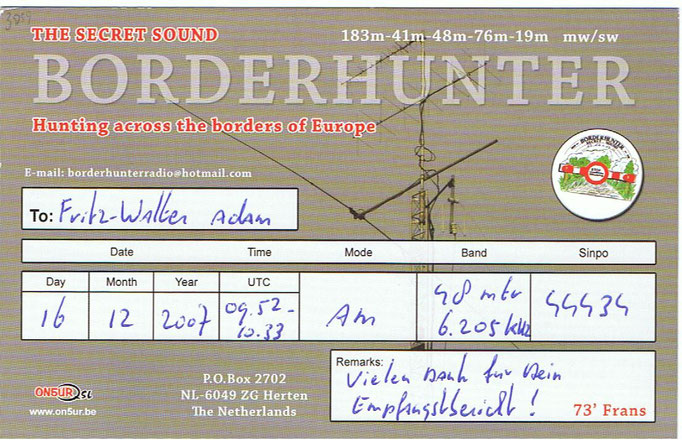 3057
THE SECRET SOUND
183m-41m-48m-76m-19m mw/sw
BORDERHUNTER
Hunting across the borders of Europe
E-mail: borderhunterradio@hotmail.com
BORDERHUNTER
To: Fritz-Walter Adam
Date Time Mode Band Sinpo
Day Month Year UTC
16 12 2007 09.52-10.33 AM 48 mtr 6.205 kHz 44434
Remarks:
Vielen Dank für Dein
Empfangsbericht!
73' Frans
ON5UR QSL
www.on5ur.be
P.O.Box 2702
NL-6049 ZG Herten
The Netherlands